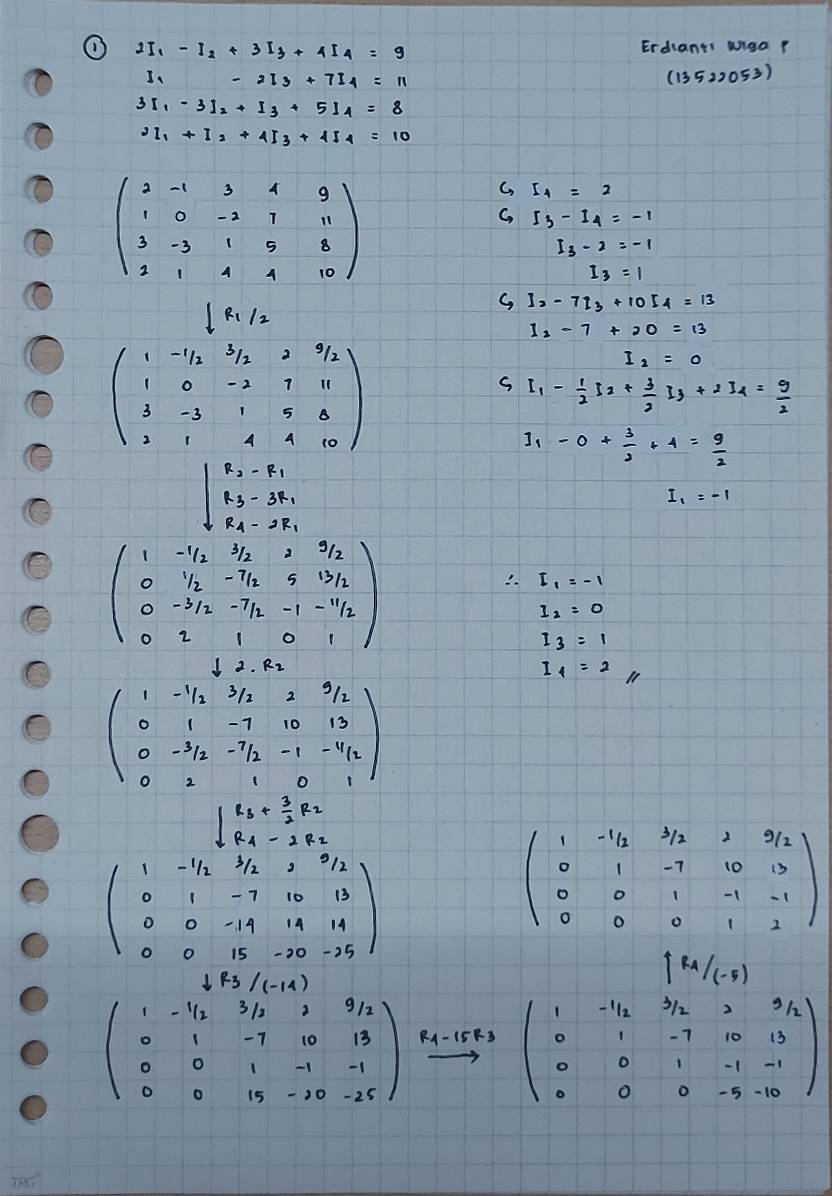 ① 2I₁ - I₂ + 3I₃ + 4I₄ = 9
I₁ - 2I₃ + 7I₄ = 11
3I₁ - 3I₂ + I₃ + 5I₄ = 8
2I₁ + I₂ + 4I₃ + 4I₄ = 10
Erdianti Wiga P
(13522053)
2 -1 3 4 9
1 0 -2 7 11
3 -3 1 5 8
2 1 4 4 10
↓ R₁/2
1 -1/2 3/2 2 9/2
1 0 -2 7 11
3 -3 1 5 8
2 1 4 4 10
↓ R₂ - R₁
R₃ - 3R₁
R₄ - 2R₁
1 -1/2 3/2 2 9/2
0 1/2 -7/2 5 13/2
0 -3/2 -7/2 -1 -11/2
0 2 1 0 1
↓ 2.R₂
1 -1/2 3/2 2 9/2
0 1 -7 10 13
0 -3/2 -7/2 -1 -11/2
0 2 1 0 1
↓ R₃ + 3/2 R₂
R₄ - 2R₂
1 -1/2 3/2 2 9/2
0 1 -7 10 13
0 0 -14 14 14
0 0 15 -20 -25
↓ R₃/(-14)
1 -1/2 3/2 2 9/2
0 1 -7 10 13
0 0 1 -1 -1
0 0 15 -20 -25
R₄-15R₃ →
1 -1/2 3/2 2 9/2
0 1 -7 10 13
0 0 1 -1 -1
0 0 0 -5 -10
↑ R₄/(-5)
1 -1/2 3/2 2 9/2
0 1 -7 10 13
0 0 1 -1 -1
0 0 0 1 2
↳ I₄ = 2
↳ I₃ - I₄ = -1
I₃ - 2 = -1
I₃ = 1
↳ I₂ - 7I₃ + 10I₄ = 13
I₂ - 7 + 20 = 13
I₂ = 0
↳ I₁ - 1/2 I₂ + 3/2 I₃ + 2I₄ = 9/2
I₁ - 0 + 3/2 + 4 = 9/2
I₁ = -1
∴ I₁ = -1
I₂ = 0
I₃ = 1
I₄ = 2 //